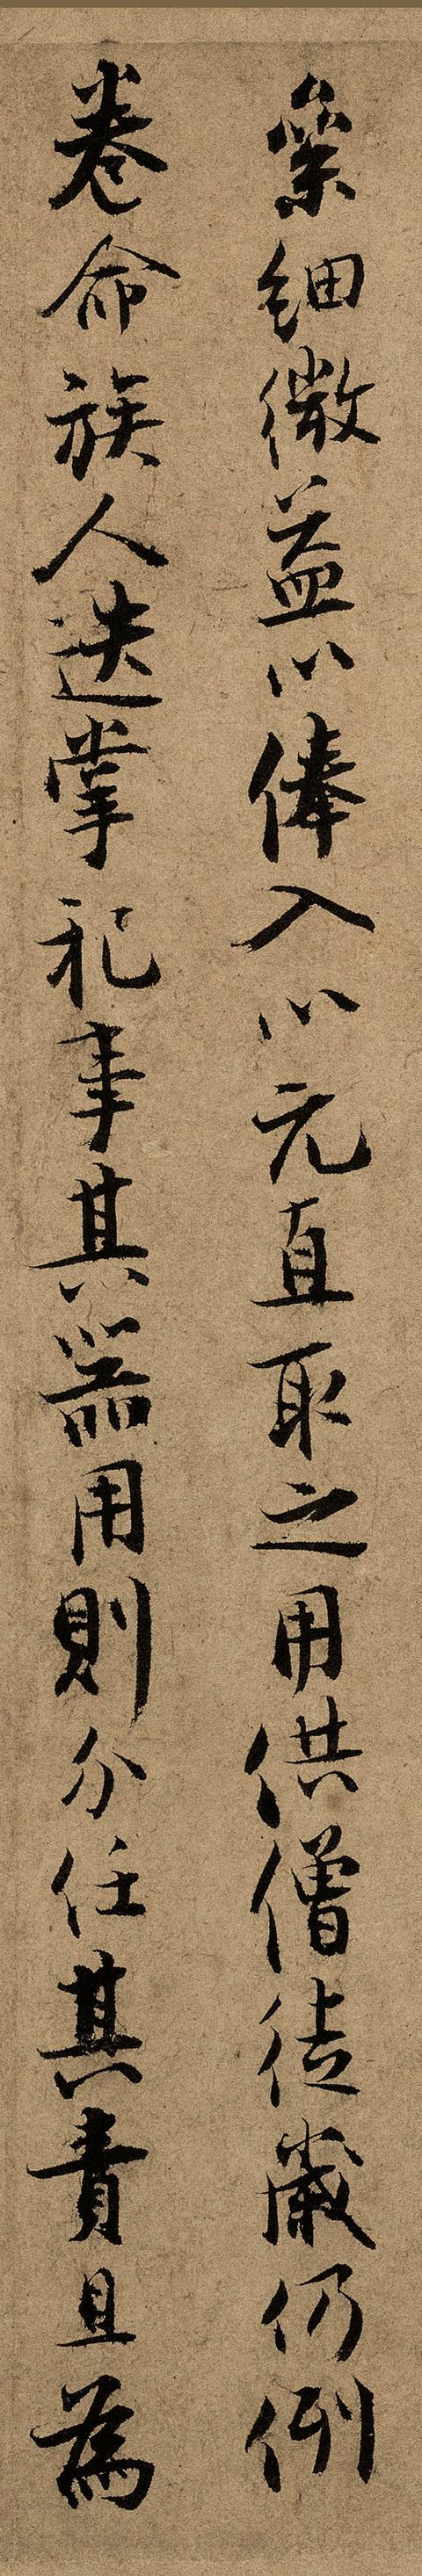 絫細微益以俸入以元直取之用供僧徒歲仍例
卷命族人迭掌祀事其器用則分任其責且為